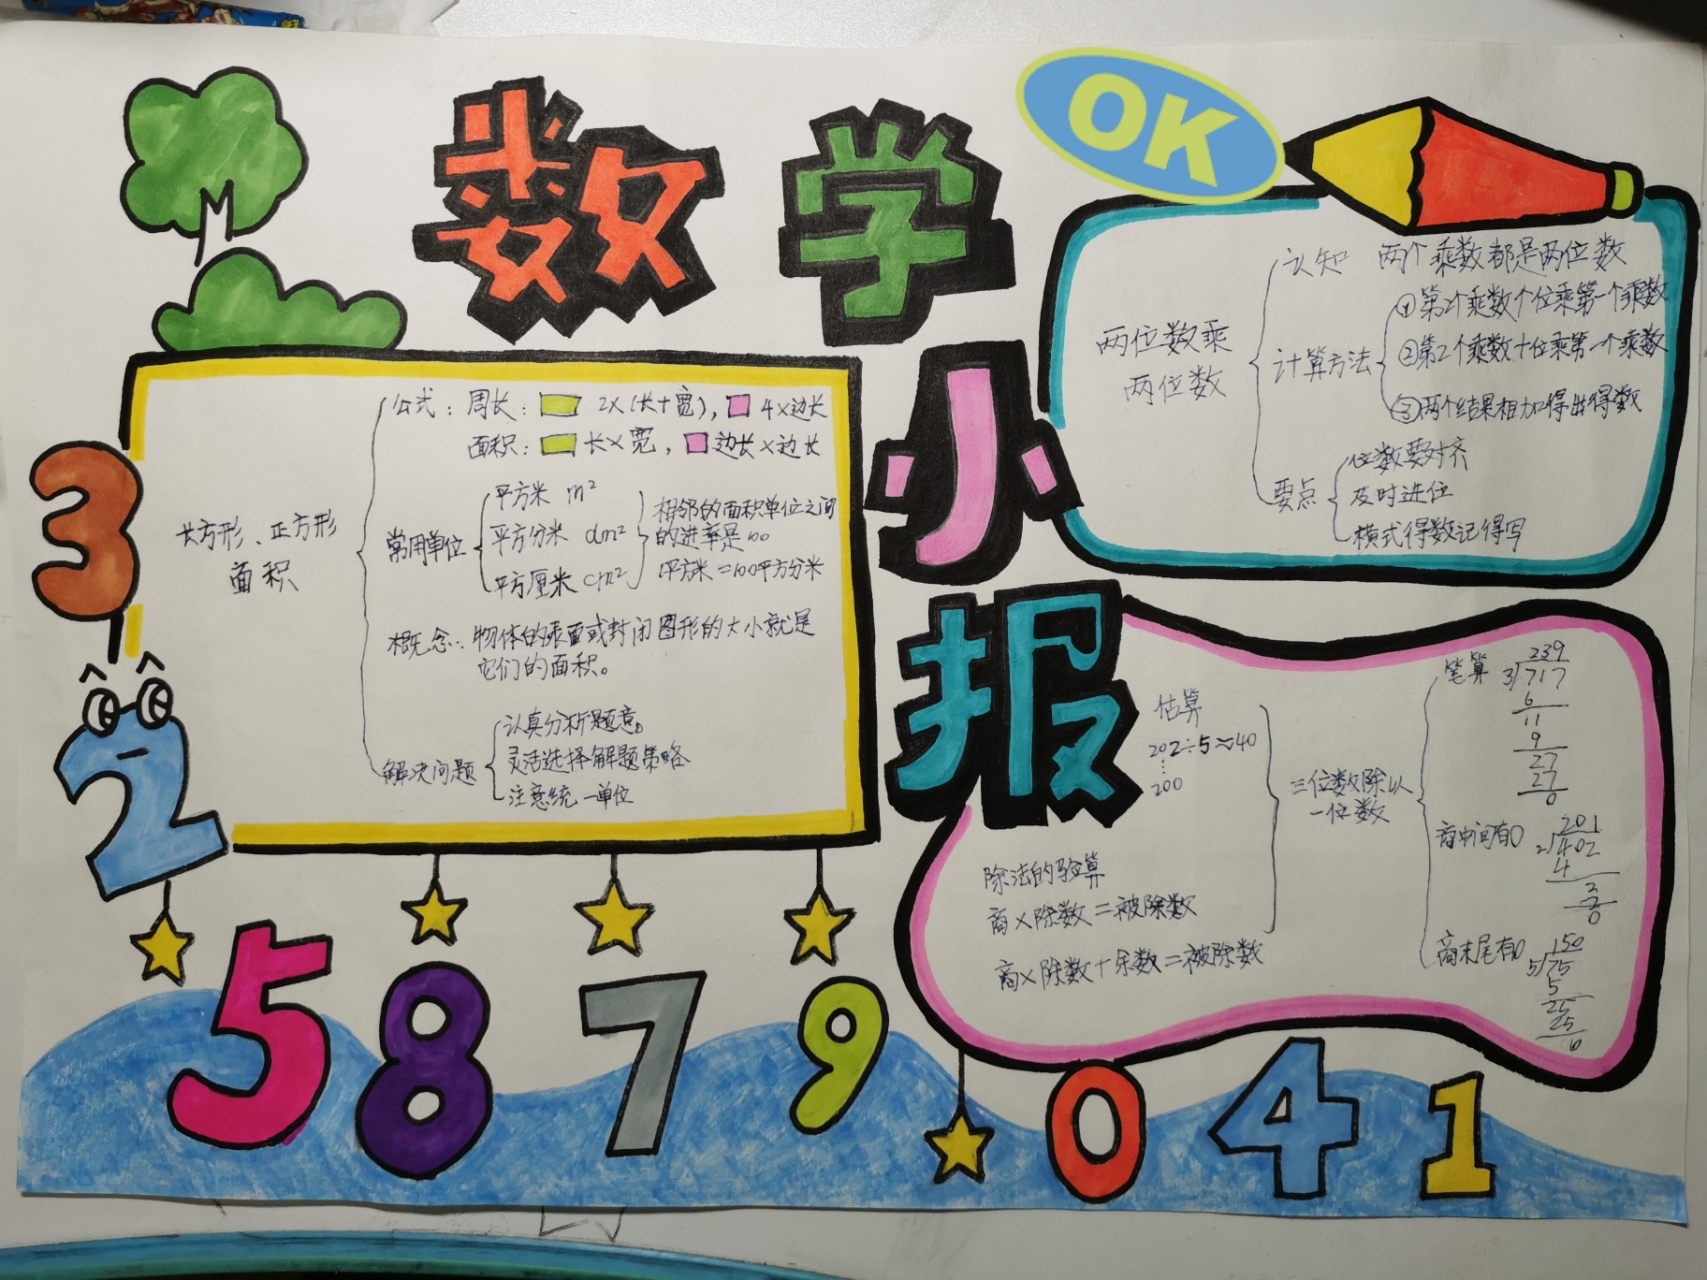 数学小报
OK
长方形、正方形
面积
公式：周长： 2×(长+宽)， 4×边长
面积： 长×宽， 边长×边长
常用单位
平方米 m²
平方分米 dm²
平方厘米 cm²
相邻的面积单位之间
的进率是100
1平方米=100平方分米
概念：物体的表面或封闭图形的大小就是
它们的面积。
解决问题
认真分析题意。
灵活选择解题策略
注意统一单位
两位数乘
两位数
认知 两个乘数都是两位数
计算方法
①第2个乘数个位乘第一个乘数
②第2个乘数十位乘第一个乘数
③两个结果相加得出得数
要点
位数要对齐
及时进位
横式得数记得写
估算
202÷5≈40
⋮
200
除法的验算
商×除数=被除数
商×除数+余数=被除数
三位数除以
一位数
笔算
239
3/717
6
11
9
27
27
0
商中间有0
201
2/402
4
2
2
0
商末尾有0
150
5/75
5
25
25
0
3
2
5 8 7 9 0 4 1